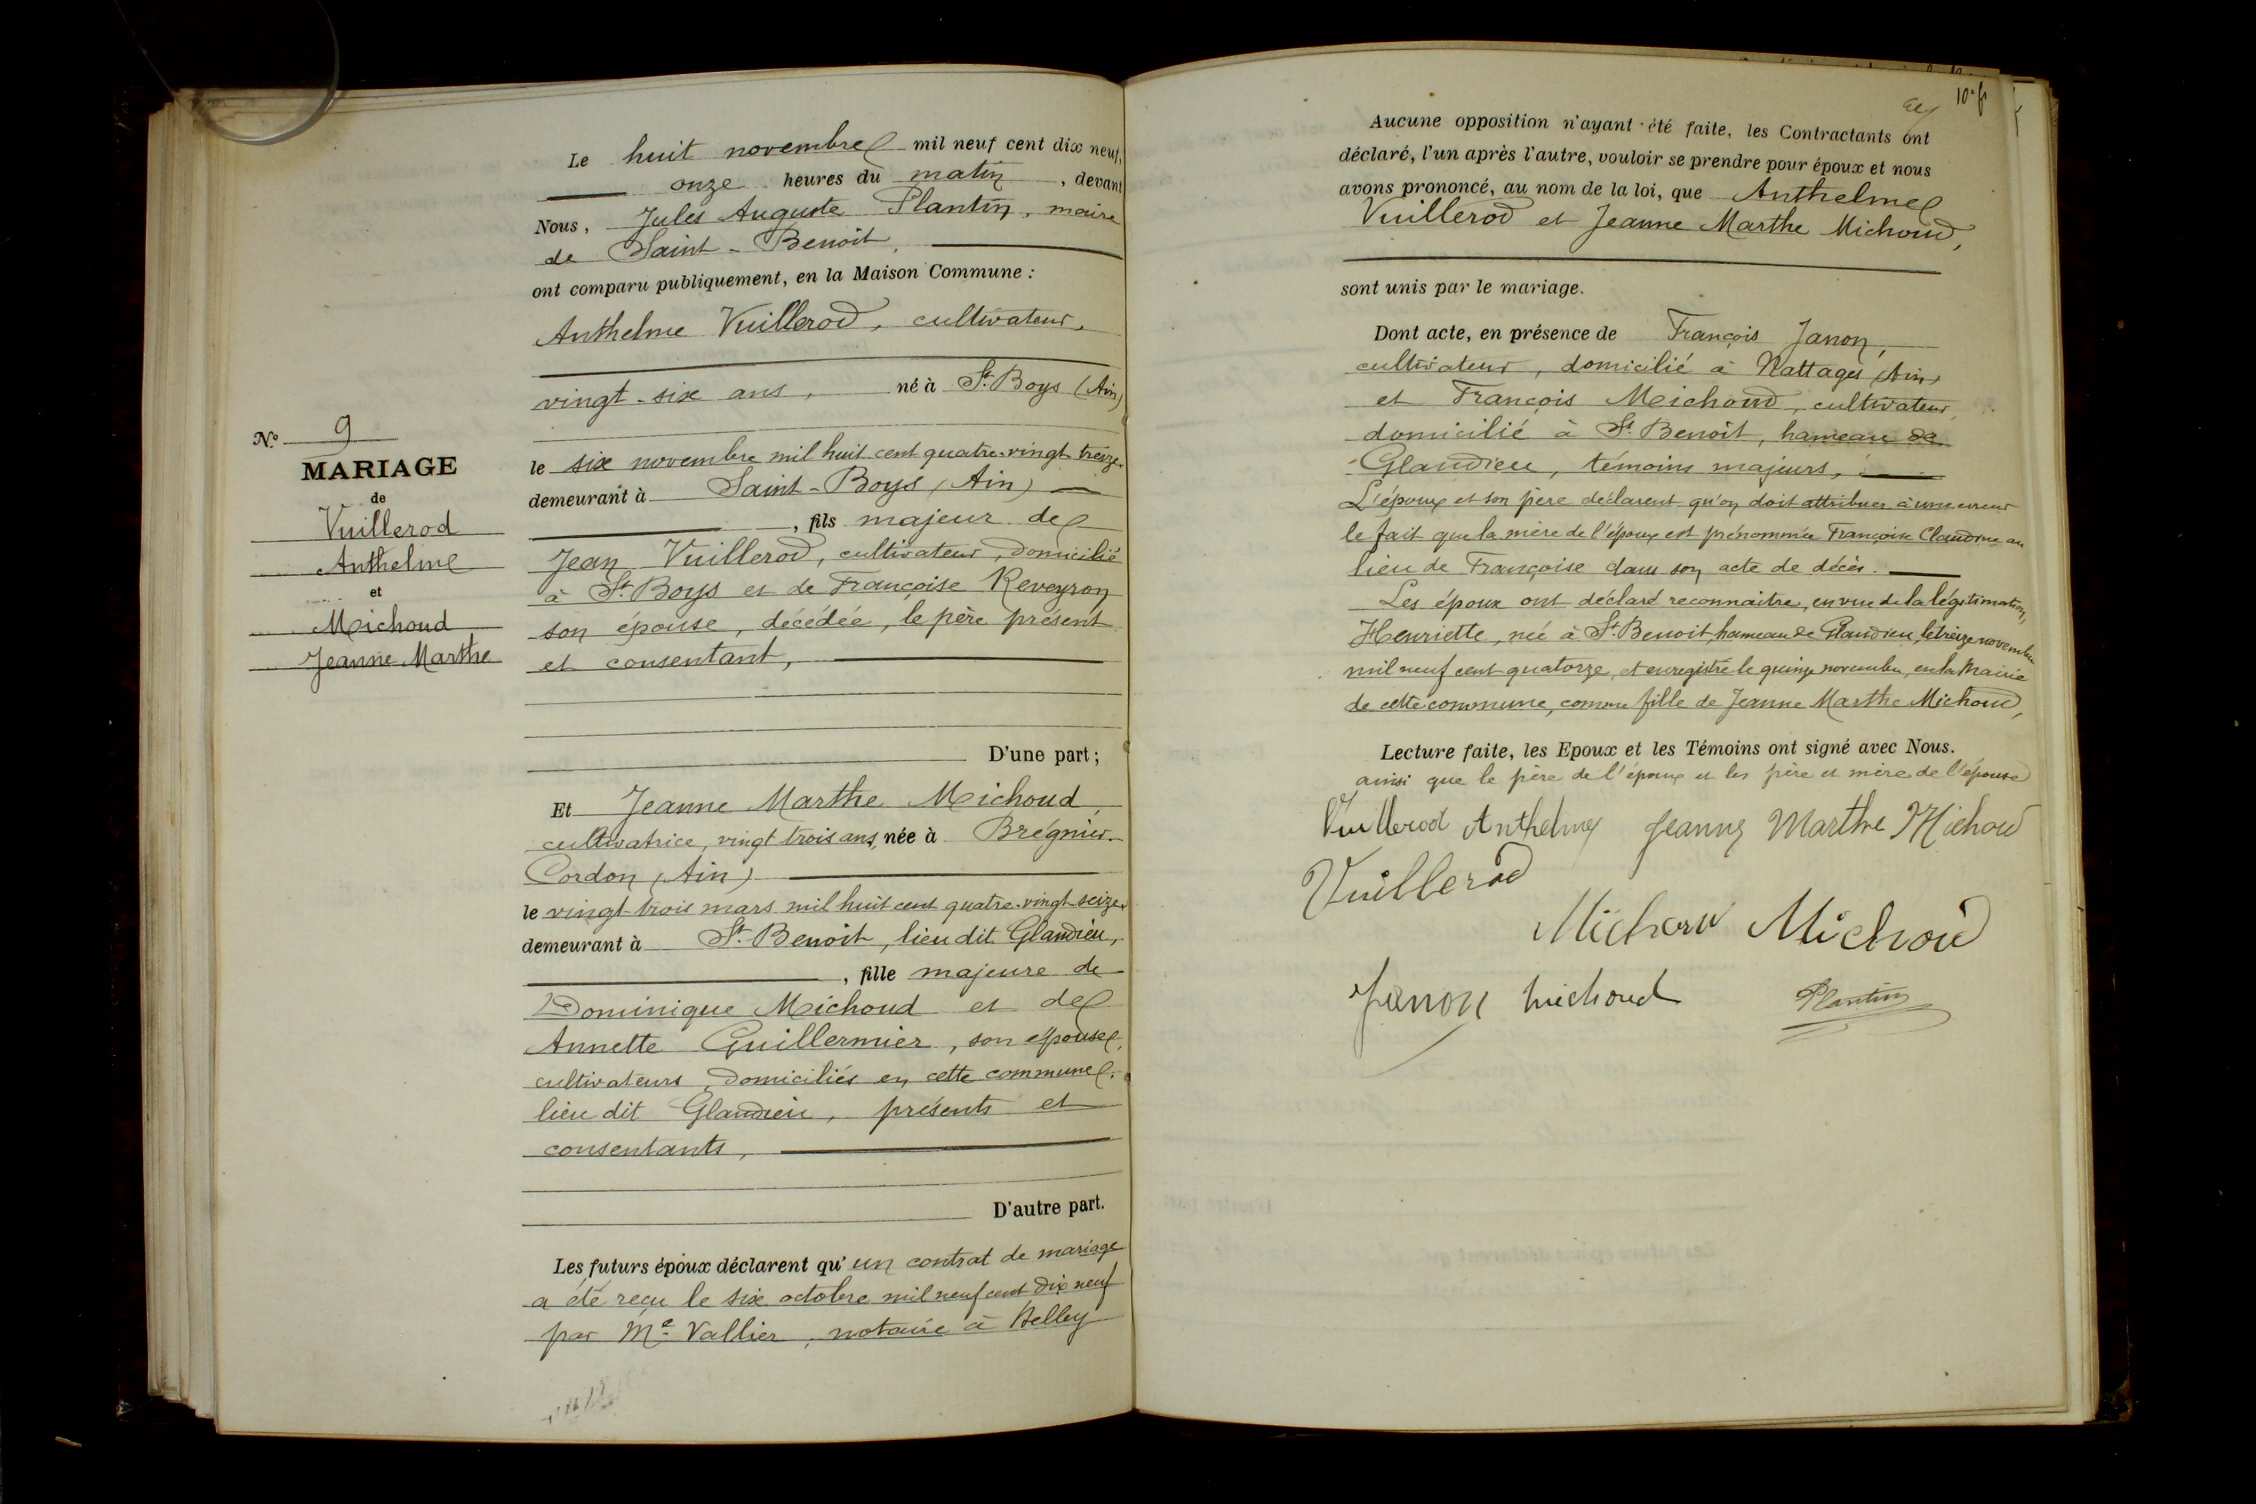 N.º 9
MARIAGE
de
Vuillerod
Anthelme
et
Michoud
Jeanne Marthe
Le huit novembre mil neuf cent dix neuf,
onze heures du matin, devant
Nous, Jules Auguste Plantin, maire
de Saint-Benoit,
ont comparu publiquement, en la Maison Commune :
Anthelme Vuillerod, cultivateur,
vingt-six ans, né à St. Boys (Ain)
le six novembre mil huit cent quatre-vingt treize,
demeurant à Saint-Boys (Ain)
, fils majeur de
Jean Vuillerod, cultivateur, domicilié
à St Boys et de Françoise Reveyron
son épouse, décédée, le père présent
et consentant,
D'une part ;
Et Jeanne Marthe Michoud,
cultivatrice, vingt trois ans, née à Brégnier-
Cordon (Ain)
le vingt trois mars mil huit cent quatre-vingt seize,
demeurant à St. Benoit, lieu dit Glandieu,
, fille majeure de
Dominique Michoud et de
Annette Guillermier, son épouse,
cultivateurs, domiciliés en cette commune,
lieu dit Glandieu, présents et
consentants,
D'autre part.
Les futurs époux déclarent qu'un contrat de mariage
a été reçu le six octobre mil neuf cent dix neuf
par Me Vallier, notaire à Belley
10e f
Aucune opposition n'ayant été faite, les Contractants ont
déclaré, l'un après l'autre, vouloir se prendre pour époux et nous
avons prononcé, au nom de la loi, que Anthelme
Vuillerod et Jeanne Marthe Michoud,
sont unis par le mariage.
Dont acte, en présence de François Janon,
cultivateur, domicilié à Nattages (Ain)
et François Michoud, cultivateur,
domicilié à St. Benoit, hameau de
Glandieu, témoins majeurs,
L'époux et son père déclarent qu'on doit attribuer à une erreur
le fait que la mère de l'époux est prénommée Françoise Claudine au
lieu de Françoise dans son acte de décès.
Les époux ont déclaré reconnaitre, en vue de la légitimation,
Henriette, née à St. Benoit, hameau de Glandieu, le treize novembre
mil neuf cent quatorze, et enregistrée le quinze novembre, en la Mairie
de cette commune, comme fille de Jeanne Marthe Michoud,
Lecture faite, les Epoux et les Témoins ont signé avec Nous.
ainsi que le père de l'époux et les père et mère de l'épouse
Vuillerod Anthelme Jeanne Marthe Michoud
Vuillerod
Michoud Michoud
Janon Michoud Plantin